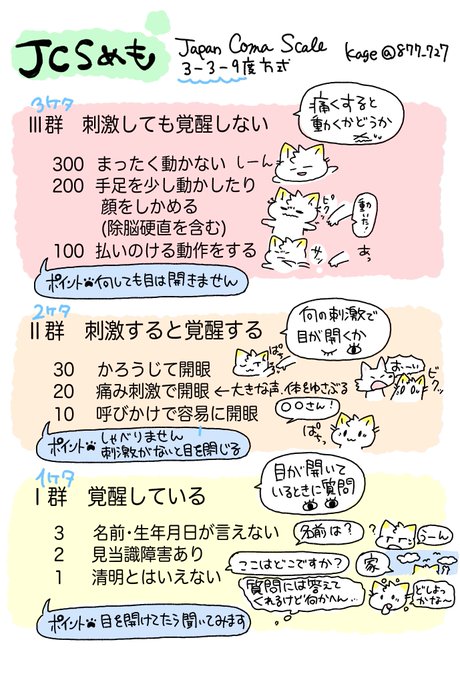 JCSめも
Japan Coma Scale
3-3-9度方式
Kage@877_727
3ケタ
Ⅲ群 刺激しても覚醒しない
痛くすると
動くかどうか
300 まったく動かない しーん
200 手足を少し動かしたり
顔をしかめる
(除脳硬直を含む)
ピクッ
動いた?
100 払いのける動作をする
サッ
あっ
ポイント 何しても目は開きません
2ケタ
Ⅱ群 刺激すると覚醒する
何の刺激で
目が開くか
30 かろうじて開眼
ぱち
おーい
20 痛み刺激で開眼 ←大きな声、体をゆさぶる
ビクッ
10 呼びかけで容易に開眼
〇〇さん!
ぱちっ
ポイント しゃべりません
刺激がないと目を閉じる
1ケタ
Ⅰ群 覚醒している
目が開いて
いるときに質問
3 名前・生年月日が言えない
名前は?
?
うーん
2 見当識障害あり
ここはどこですか?
家
1 清明とはいえない
質問には答えて
くれるけど何かへん…
どしよっ
かな~
ポイント 目を開けてたら聞いてみます